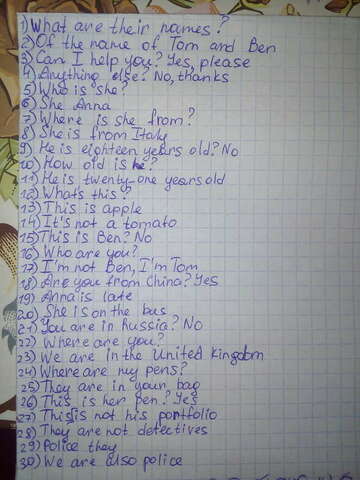 1) What are their names?
2) Of the name of Tom and Ben
3) Can I help you? Yes, please
4) Anything else? No, thanks
5) Who is she?
6) She Anna
7) Where is she from?
8) She is from Italy
9) He is eighteen years old? No
10) How old is he?
11) He is twenty-one years old
12) What's this?
13) This is apple
14) It's not a tomato
15) This is Ben? No
16) Who are you?
17) I'm not Ben, I'm Tom
18) Are you from China? Yes
19) Anna is late
20) She is on the bus
21) You are in Russia? No
22) Where are you?
23) We are in the United Kingdom
24) Where are my pens?
25) They are in your bag
26) This is her pen? Yes
27) This is not his portfolio
28) They are not detectives
29) Police they
30) We are also police